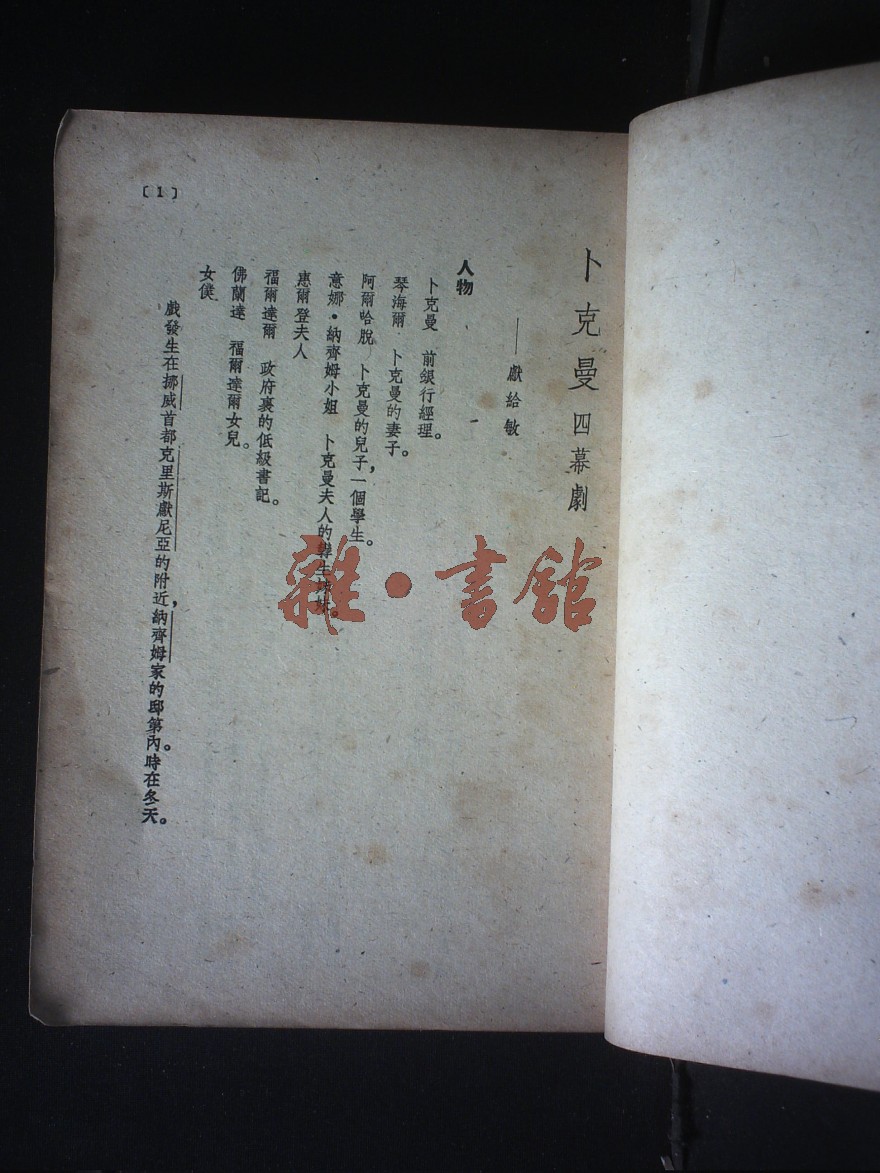 卜克曼 四幕劇
——獻給敏
人物
卜克曼 前銀行經理。
琴海爾 卜克曼的妻子。
阿爾哈脫 卜克曼的兒子，一個學生。
意娜·納齊姆小姐 卜克曼夫人的孿生姊妹。
惠爾登夫人
福爾達爾 政府裏的低級書記。
佛蘭達 福爾達爾女兒。
女僕
戲發生在挪威首都克里斯獻尼亞的附近，納齊姆家的邸第內。時在冬天。
〔1〕
雜·書館